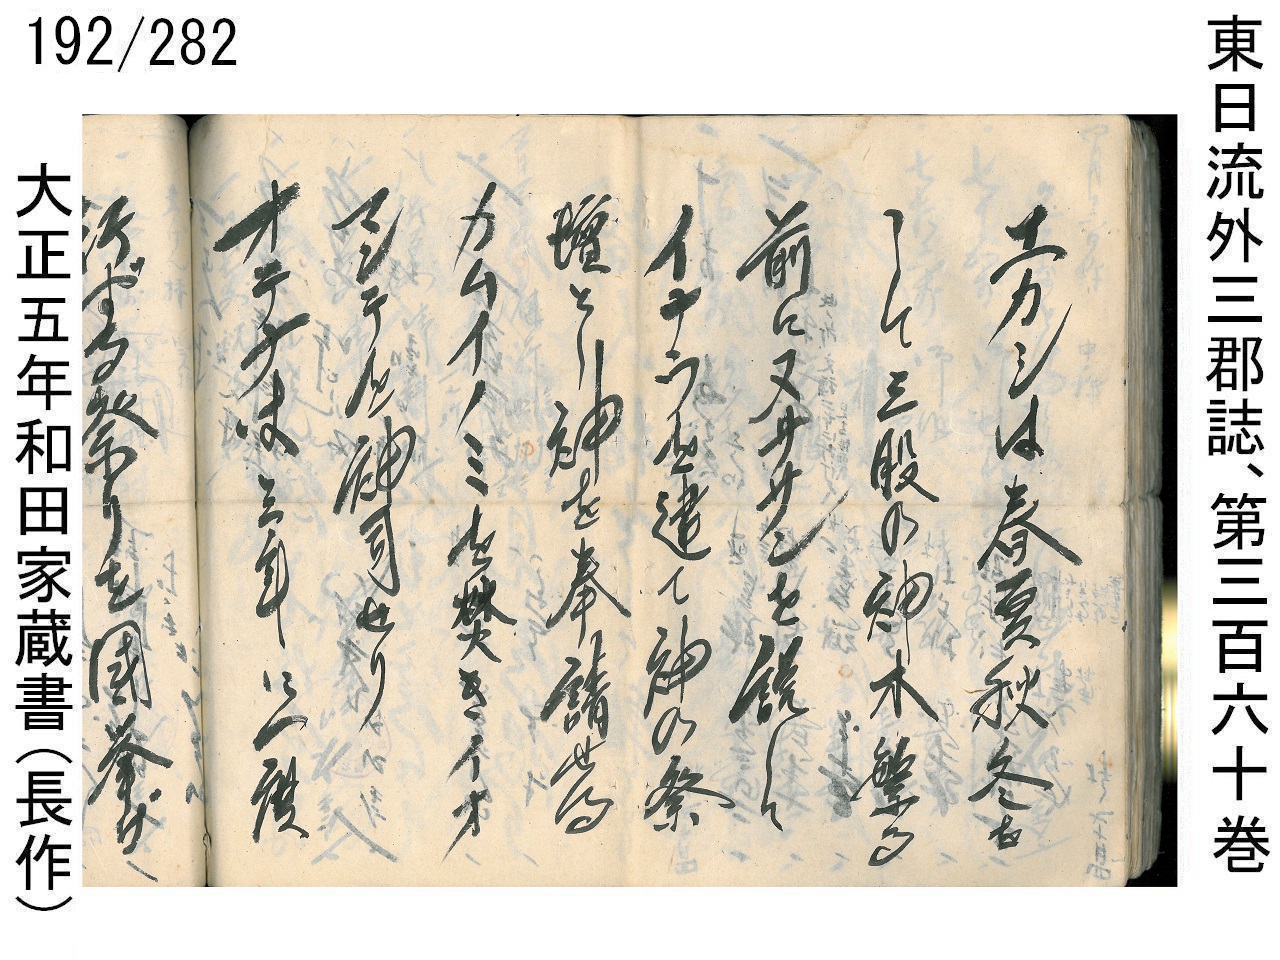 192/282
東日流外三郡誌、第三百六十巻
エカシは春夏秋冬を
して三股の神木繁る
前に又ササンを設して
イナウを建て神の祭
壇とし神を奉請せる
カムイノミを焚きイオ
マンテの神司せり
オテナは三年に一度
行ずる祭りを國挙げ
大正五年和田家蔵書(長作)